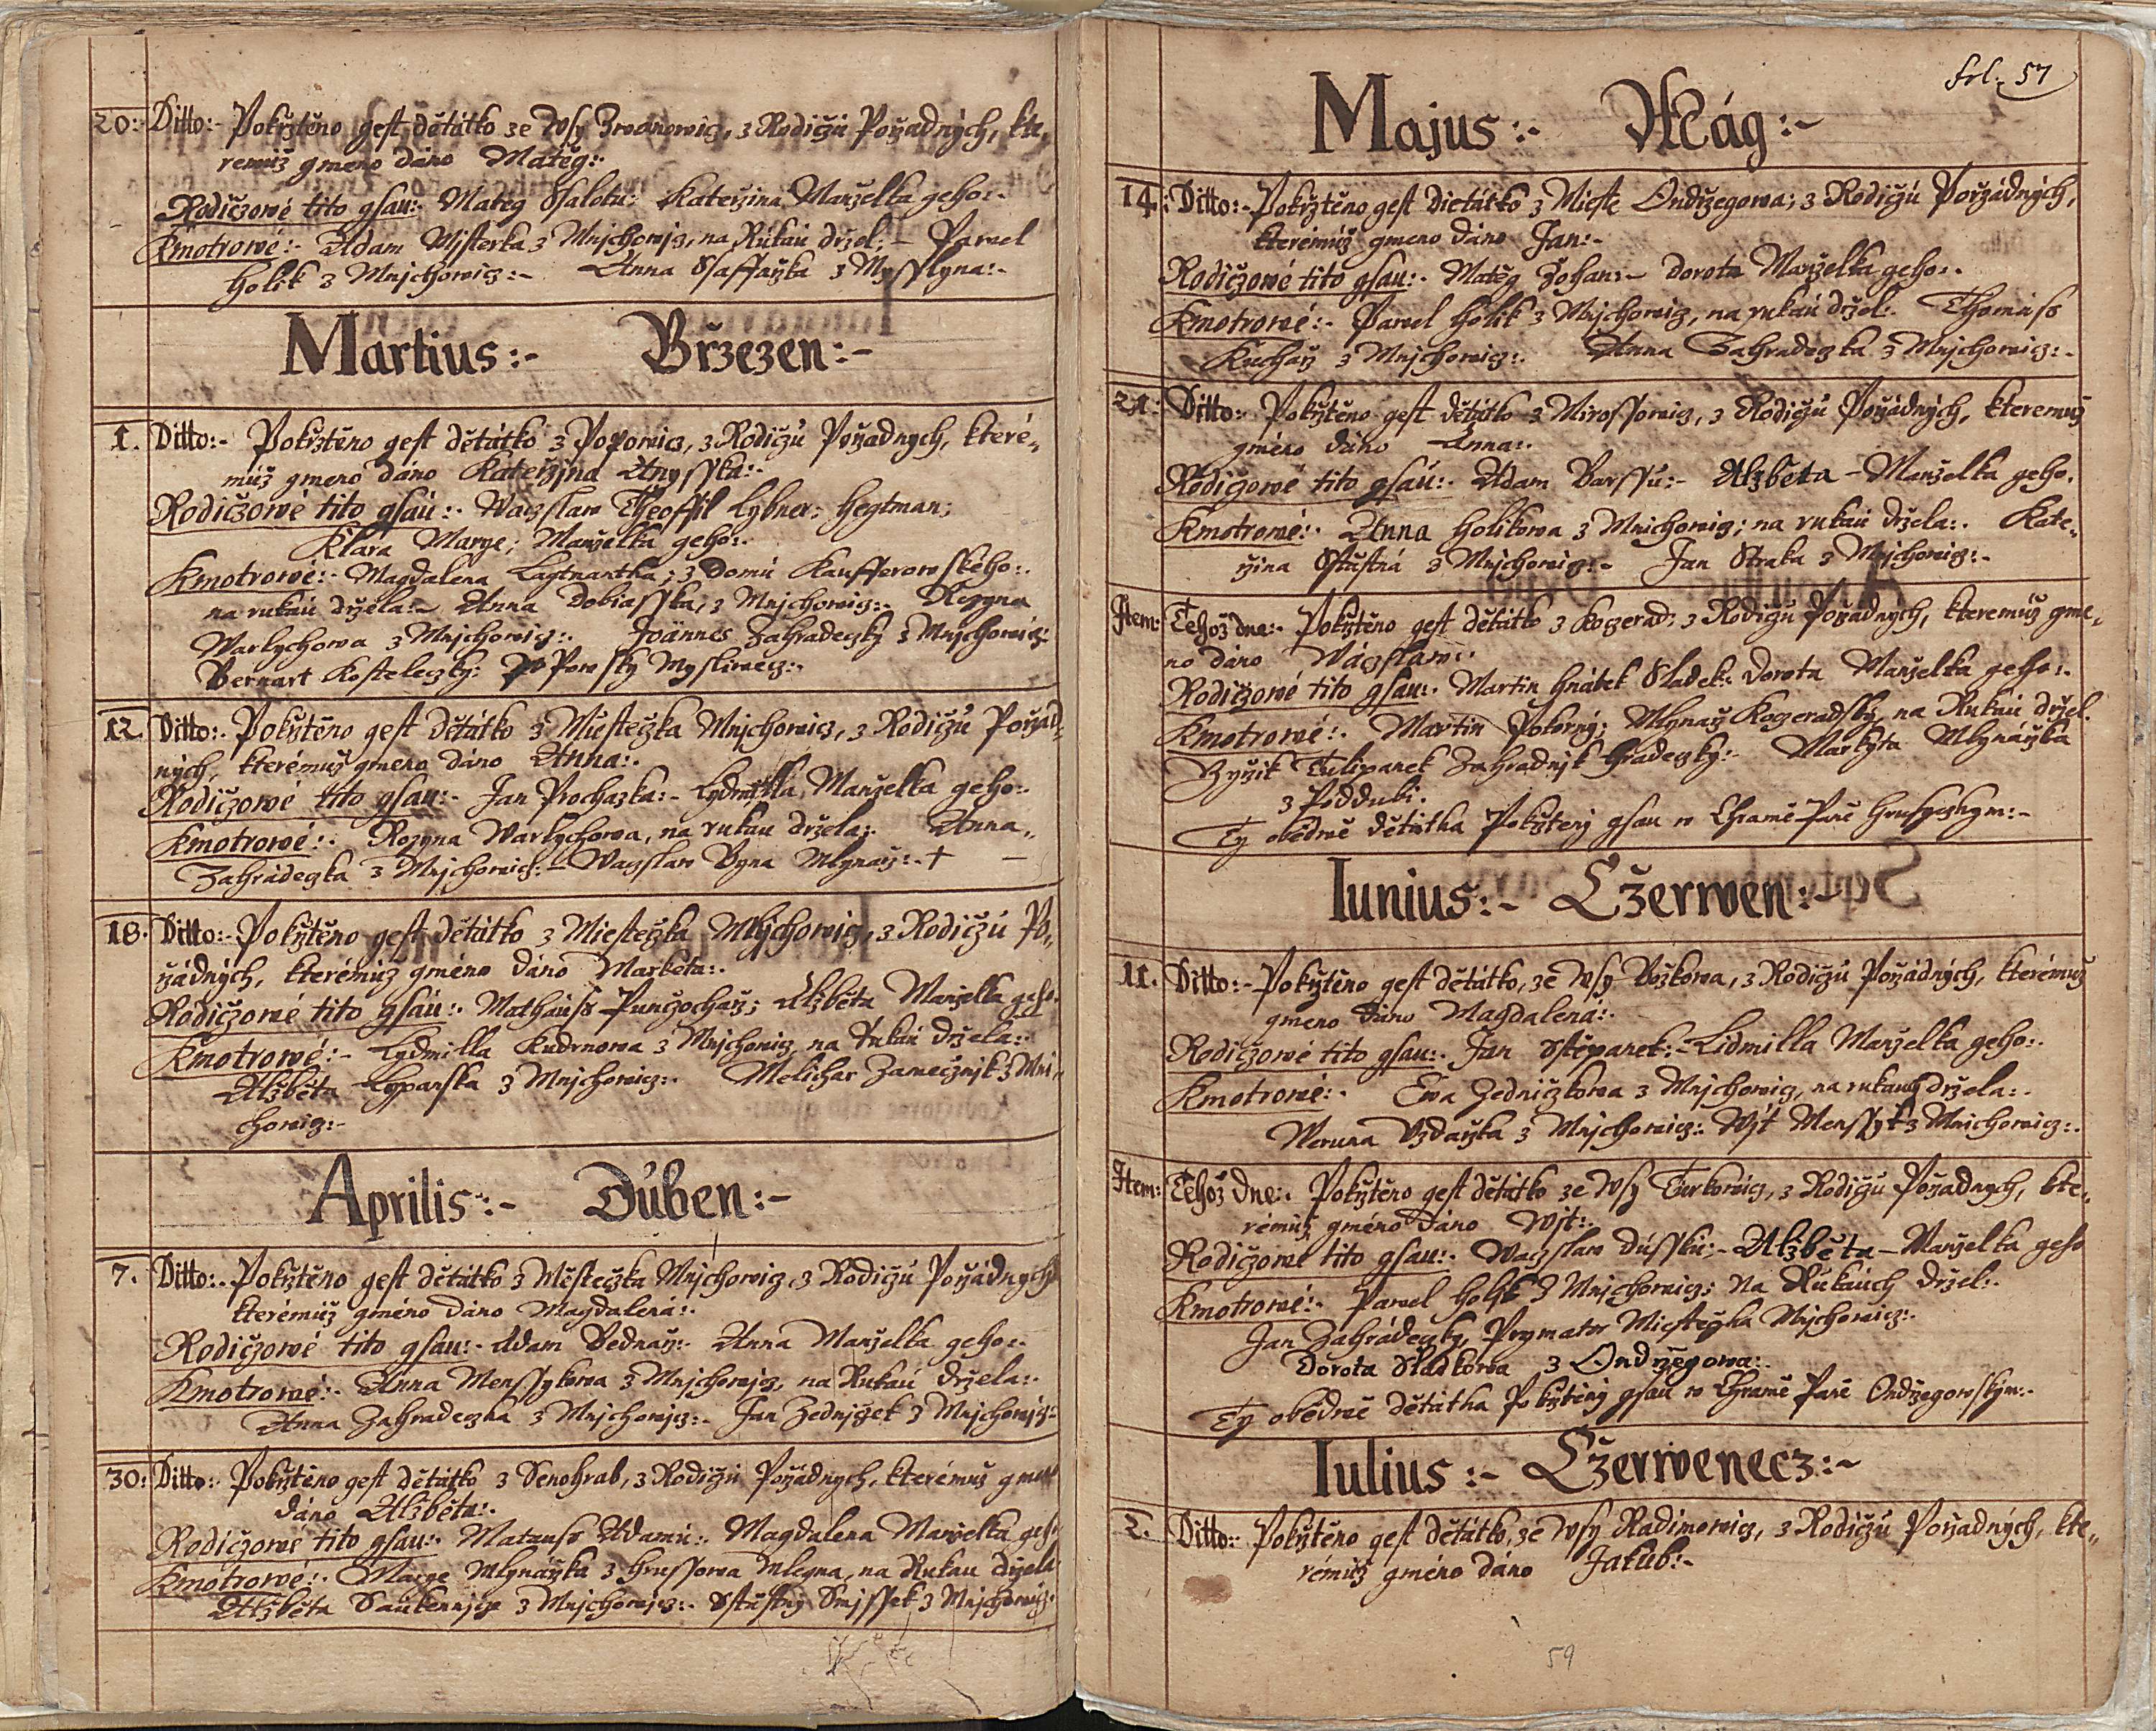 20:. Ditto:- Pokřztěno gest dětátko ze Wsy Zwanowicz, z Rodičzů Pořzadných, kte„
remuž gmeno dáno Matěg:.
Rodičzowé tito gsau:. Mateg Ssalotu: Kateržina Manželka geho:.
Kmotrowé:- Adam Mysterka z Mnjchowicz, na Rúkau držel:- Pawel
Holik z Mnjchowicz:- Anna Ssaffařzka z Mysslyna:.
Martius:- Břzezen:-
1. Ditto:- Pokřztěno gest dětátko z Popowicz, z Rodičzů Pořzadných, které„
muž gmeno dáno Kateržyna Anysska:.
Rodičzowé tito gsaú:. Waczslaw Theoffil Lybner: Hegtman;
Klara Marye; Manželka geho:.
Kmotrowé:- Magdalena Lagtnantka; z Domú Kaufferowského:.
na rukau držela:- Anna Dobiasska, z Mnjchowicz:. Rozyna
Warlychowa z Mnjchowicz:. Joännes Zahradeczky z Mnjchowicz:
Bernart Kosteleczky: Popowsky Myslivecz:.
12. Ditto:. Pokřztěno gest dětátko z Městečzka Mnjchowicz, z Rodičzů Pořzád„
ných, kterémuž gmeno dáno Anna:.
Rodičzowé tito gsau:- Jan Prochazka:- Lydmilla Manželka geho:.
Kmotrowé:. Rozyna Warlychowa, na rukau držela:. Anna„
Zahrádeczka z Mnjchowicz:- Waczslaw Byna Mlynařz:. † —
18. Ditto:- Pokřztěno gest dětátko z Miestečzka Mnjchowicz, z Rodičzů Po„
řzádných, kterémuž gméno dáno Markéta:.
Rodičzowé tito gsáu:. Mathauss Punčzochařz; Alžběta Manželka geho.
Kmotrowé:- Lydmilla Kudrnowa z Mnjchowicz na Rukau držela:.
Alžběta Lyparska z Mnjchowicz:. Melichar Zamečznjk z Mni„
chowicz:-
Aprilis:- Dúben:-
7. Ditto:. Pokřztěno gest dětátko z Městečzka Mnjchowicz, z Rodičzů Pořzádnych
kterémuž gméno dáno Magdalená:.
Rodičzowé tito gsau:- Adam Bednařz:. Anna Manželka geho:.
Kmotrowé:. Anna Menssykowa z Mnjchowicz, na Rukaú držela:.
Anna Zahradeczka z Mnjchowicz:- Jan Zednjčzek z Mnjchowicz:-
30: Ditto:. Pokřztěno gest dětátko z Senohrab, z Rodičzů Pořzádných, kterémuž gmeno
dáno Alžběta:.
Rodičzowé tito gsau:. Matauss Adamů:. Magdalena Manželka geho
Kmotrowé:. Marye Mlynářzka z Hrussowa Mlegna, na Rukau držela
Alžběta z Mnjchowicz:. Sstiastny Smjssek z Mnjchowicz:
fol: 57
Majus:- Mág:-
14: Ditto:- Pokřztěno gest dietátko z Mieste Ondřzegowa; z Rodičzů Pořzádných,
kterémúž gmeno dáno Jan:-
Rodičzowé tito gsau:. Matěg Žohan:- Dorota Manželka geho:.
Kmotrowé:. Pawel Holik z Mnjchowicz, na rukau držel:. Thomass
Kuchařz z Mnjchowicz:. Anna Zahradeczka z Mnjchowicz:.
21: Ditto:. Pokřztěno gest dětátko z Mirossowicz, z Rodičzů Pořzádných, kteremuž
gméno dáno Anna:.
Rodičzowé tito gsaú:. Adam Barssů:- Alžběta - Manželka geho.
Kmotrowé:. Anna Holikowa z Mnichowicz; na rukau držela:. Kate„
řzina Sstiastná z Mnjchowicz:- Jan Straka z Mnjchowicz:-
Item: Tehož dne:. Pokřztěno gest dětátko z Koczerad, z Rodičzů Pořzádných, kteremuž gme„
no dáno Wáczslaw:.
Rodičzowé tito gsau:. Martin Hnátek Sladek: Dorota Manželka geho:.
Kmotrowé:. Martin Pokorný; Mlynařz Koczeradský, na Rukáu držel.
Řzyřzik Tulipanek Zahradnjk Hradeczky:- Markyta Mlynářzka
z Poddubi.
Ty obědwě dětátka Pokřzteny gsau w Chramě Páně Hrusyczkym:-
Iunius:- Cžerwen:-
11. Ditto:- Pokřztěno gest dětátko, ze Wsy Božkowa, z Rodičzů Pořzádných, kterémuž
gmeno dáno Magdalena:.
Rodičzowé tito gsau:. Jan Sstěpanek:- Lidmilla Manželka geho:.
Kmotrowé:. Ewa Zedničzkowa z Mnjchowicz, na rukauch držela:.
Weruna Uzdařzka z Mnjchowicz:. Wjt Menssyk z Mnichowicz:.
Item: Téhož dne:. Pokřztěno gest dětátko ze Wsy Turkowicz, z Rodičzů Pořzadnych, kte„
rémuž gméno dáno Wjt:.
Rodičzowé tito gsau:. Waczslaw Dússků:- Alžběta - Manželka geho
Kmotrowé:. Pawel Holjk z Mnjchowicz; na Rúkauch držel:.
Jan Zahrádeczky, Prymator Miestečzka Mnjchowicz:.
Dorota Sladkowa z Ondřzegowa:.
Ty obědwě dětátka Pokřztěny gsau w Chramě Páně Ondřzegowským:.
Iulius:- Cžerwenecz:-
2. Ditto:. Pokřztěno gest dětátko, ze Wsy Radimowicz, z Rodičzů Pořzadných, kte„
rémuž gméno dáno Jakub:-
59